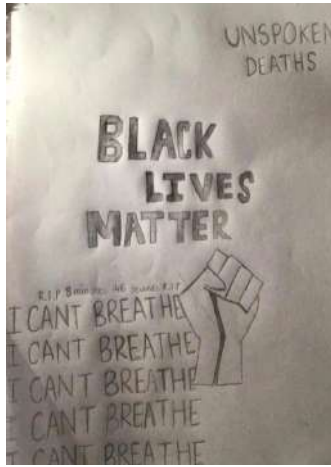 UNSPOKEN
DEATHS
BLACK
LIVES
MATTER
R.I.P 8 minutes 46 seconds R.I.P
I CANT BREATHE
I CANT BREATHE
I CANT BREATHE
I CANT BREATHE
I CANT BREATHE